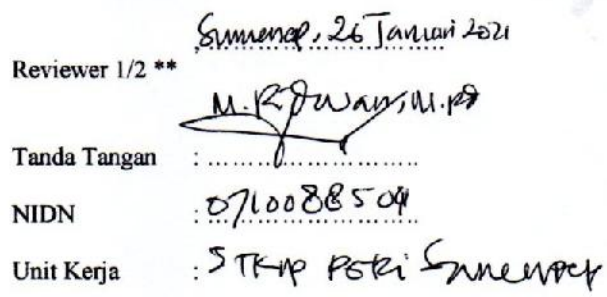 Sumenep, 26 Januari 2021
Reviewer 1/2 **
M. Ridwan, M.Pd
Tanda Tangan :
NIDN : 0710088504
Unit Kerja : STKIP PGRI Sumenep